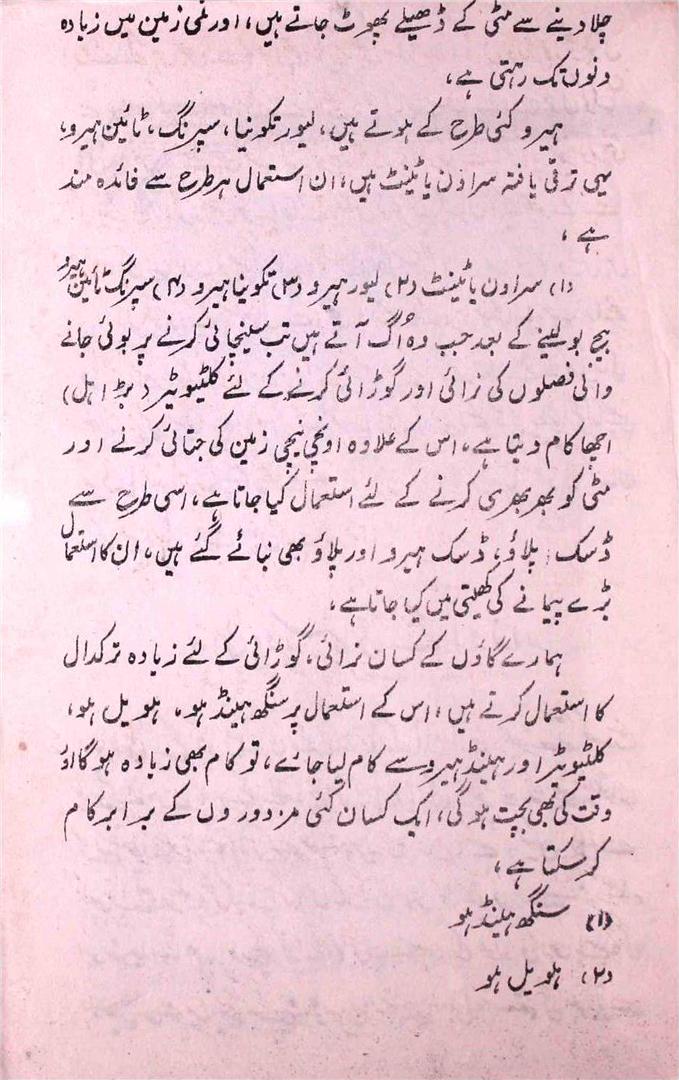 چلا دینے سے مٹی کے ڈھیلے پھوٹ جاتے ہیں، اور نمی زمین میں زیادہ
دنوں تک رہتی ہے،
ہیرو کئی طرح کے ہوتے ہیں، لیور تکونیا، سپرنگ، ٹائین ہیرو،
یہی ترقی یافتہ سراون یا ٹینٹ ہیں، ان استعمال ہر طرح سے فائدہ مند
ہے،
(۱) سراون یا ٹینٹ (۲) لیور ہیرو (۳) تکونیا ہیرو (۴) سپرنگ ٹائین ہیرو
بیج بولینے کے بعد جب وہ اُگ آتے ہیں تب سینچائی کرنے پر بوئی جانے
والی فصلوں کی نرائی اور گوڑائی کرنے کے لئے کلٹیویٹر (بڑا ہل)
اچھا کام دیتا ہے، اس کے علاوہ اونچی نیچی زمین کی جتائی کرنے اور
مٹی کو بھربھری کرنے کے لئے استعمال کیا جاتا ہے، اسی طرح سے
ڈسک، پلاؤ، ڈسک ہیرو اور پلاؤ بھی بنائے گئے ہیں، ان کا استعمال
بڑے پیمانے کی کھیتی میں کیا جاتا ہے،
ہمارے گاؤں کے کسان نرائی، گوڑائی کے لئے زیادہ تر کدال
کا استعمال کرتے ہیں، اس کے استعمال پر سنگھ ہینڈ ہو، ہلویل ہو،
کلٹیویٹر اور ہینڈ ہیرو سے کام لیا جائے، تو کام بھی زیادہ ہوگا اور
وقت کی بھی بچت ہوگی، ایک کسان کئی مزدوروں کے برابر کام
کرسکتا ہے،
(۱) سنگھ ہینڈ ہو
(۲) ہلویل ہو